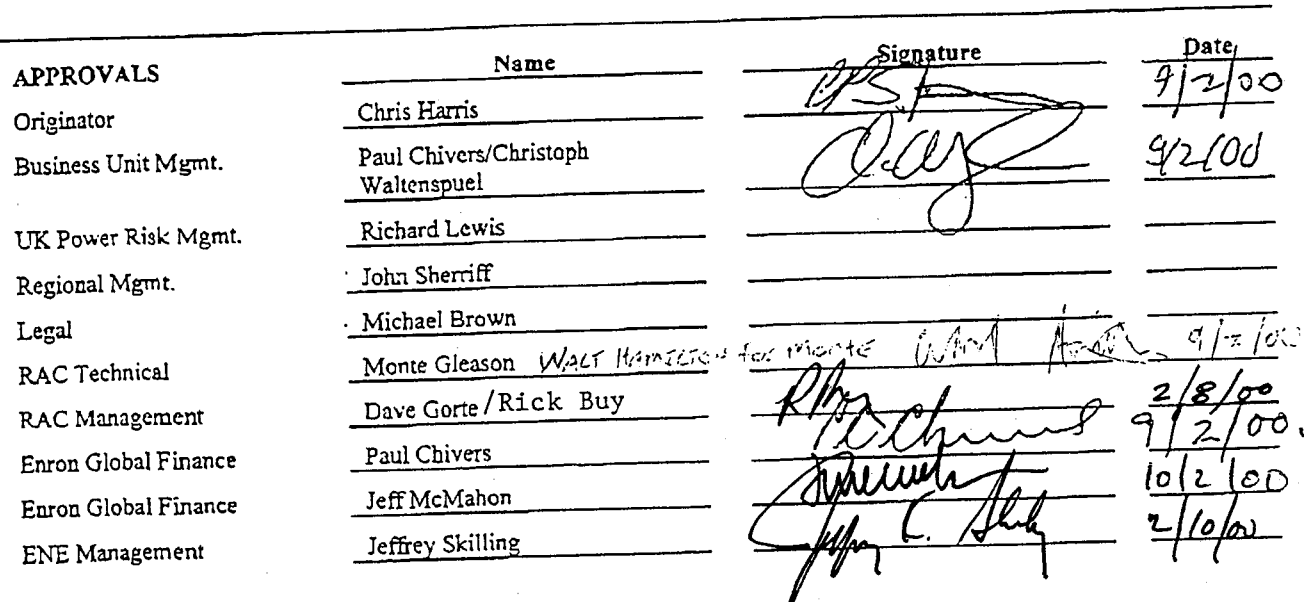 APPROVALS Name Signature Date
Originator Chris Harris 9/2/00
Business Unit Mgmt. Paul Chivers/Christoph 9/2/00
Waltenspuel
UK Power Risk Mgmt. Richard Lewis
Regional Mgmt. John Sherriff
Legal Michael Brown
RAC Technical Monte Gleason WALT HAMILTON for Monte 9/2/00
RAC Management Dave Gorte/Rick Buy 2/8/00
Enron Global Finance Paul Chivers 9/2/00.
Enron Global Finance Jeff McMahon 10/2/00
ENE Management Jeffrey Skilling 2/10/00